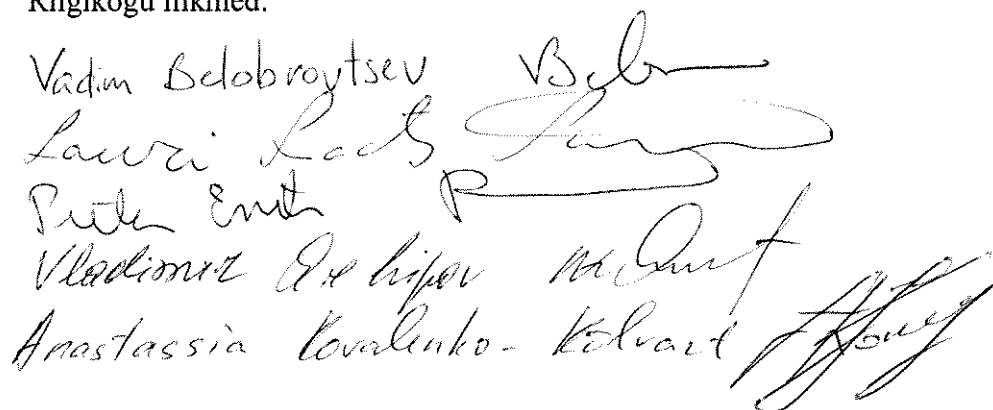 Riigikogu liikmed:
Vadim Belobrovtsev
Lauri Laats
Peeter Ernits
Vladimir Arhipov
Anastassia Kovalenko-Kõlvart